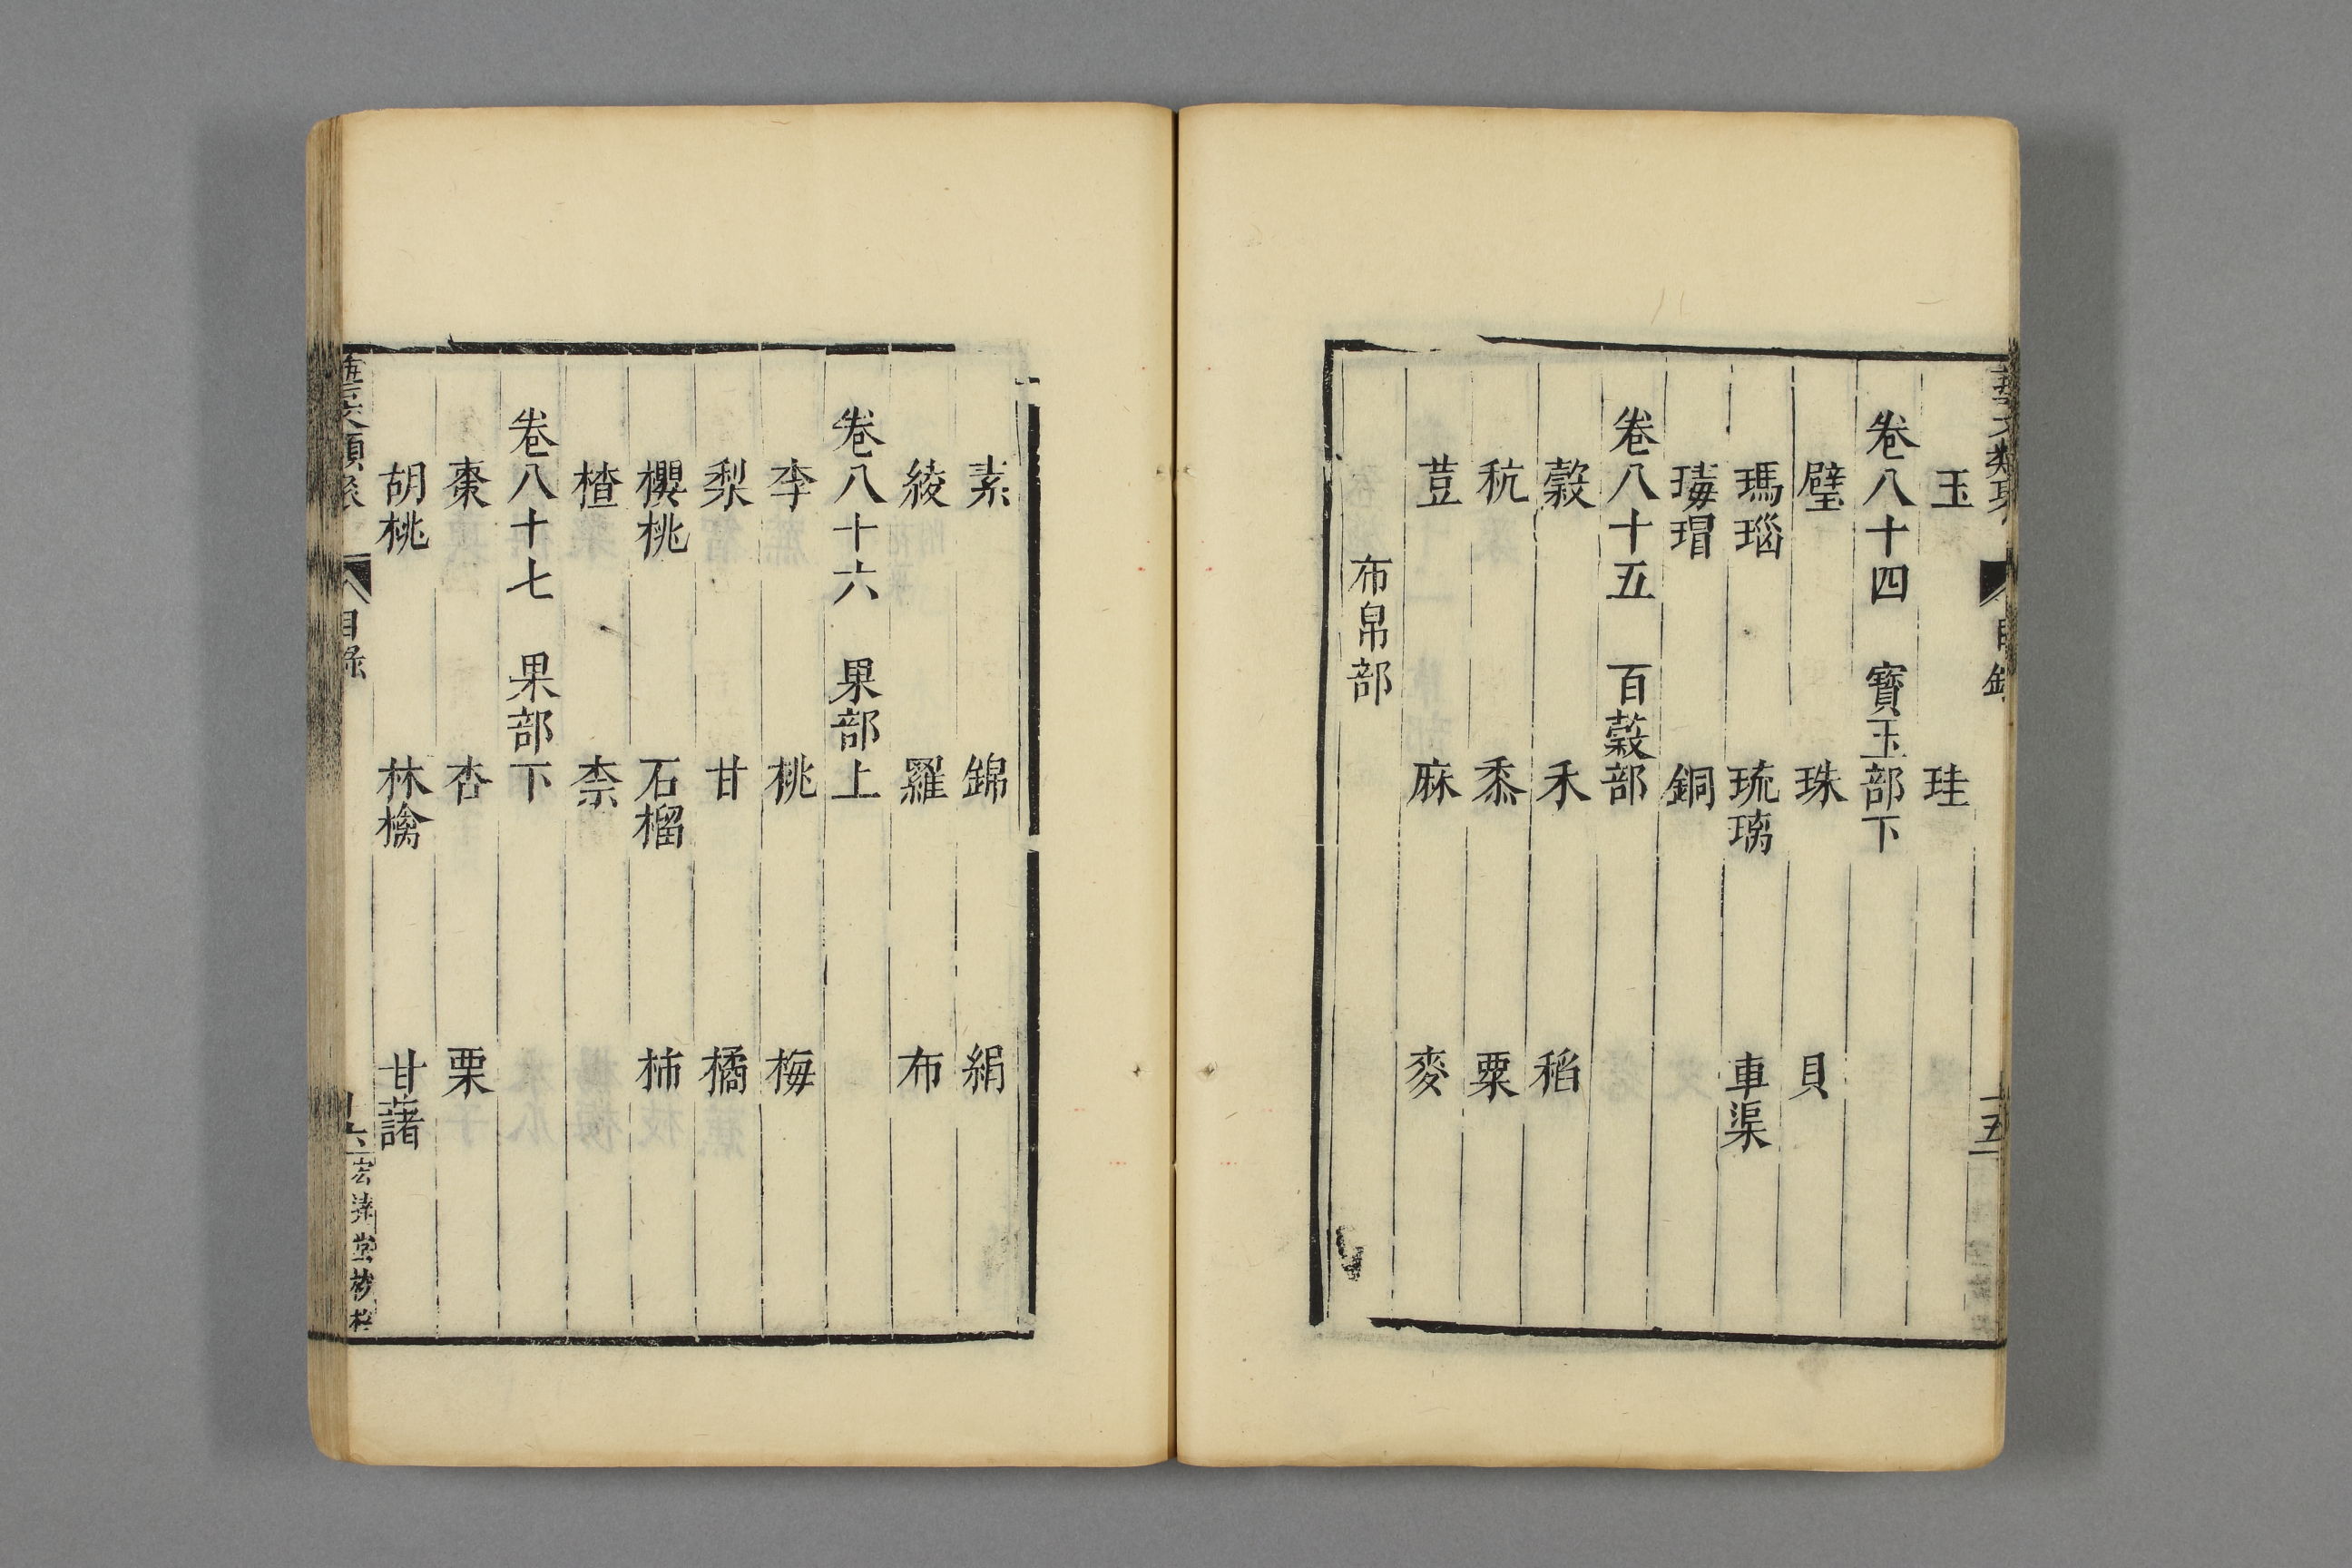 玉 珪
卷八十四 寶玉部下
璧 珠 貝
瑪瑙 琉璃 車渠
瑇瑁 銅
卷八十五 百穀部
穀 禾 稻
秔 黍 粟
荳 麻 麥
布帛部
素 錦 絹
綾 羅 布
卷八十六 果部上
李 桃 梅
梨 甘 橘
櫻桃 石榴 柿
樝 柰
卷八十七 果部下
棗 杏 栗
胡桃 林檎 甘藷
目錄